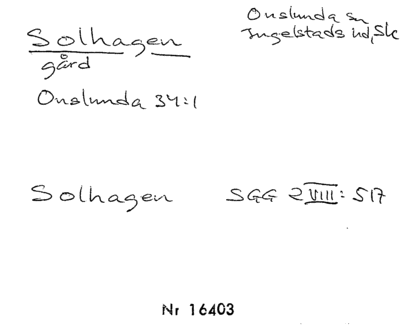 Solhagen
gård
Onslunda 34:1
Onslunda sn
Ingelstads hd, Sk
Solhagen SGG 2 VIII: 517
Nr 16403